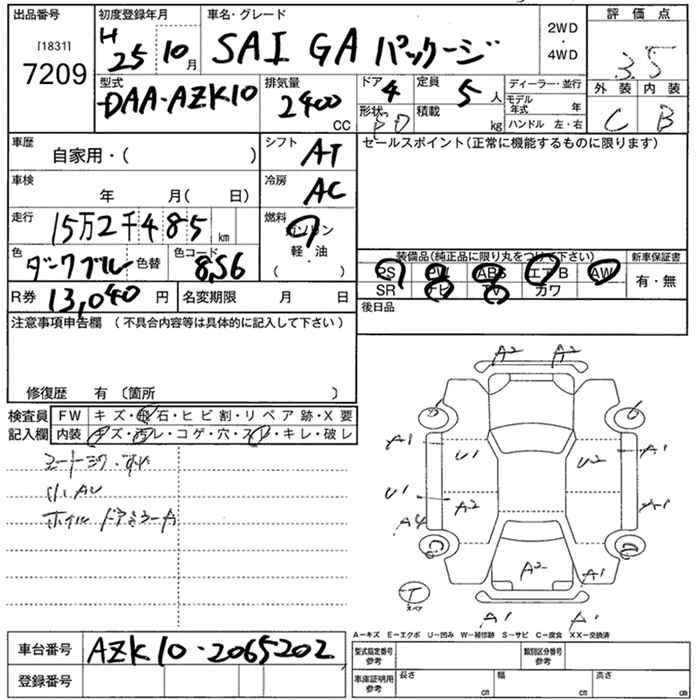 出品番号 初度登録年月 車名・グレード 評価点
[1831]
7209
H 25 10月 SAI GA パッケージ
2WD
・
4WD
3.5
型式 排気量 ドア 定員 ディーラー・並行 外装 内装
DAA-AZK10 2400 CC 4 5人
モデル年式 年
形状 積載 kg ハンドル 左・右 C B
車歴 自家用・( ) シフト AT セールスポイント(正常に機能するものに限ります)
車検 年 月( 日) 冷房 AC
走行 15万2千485 km 燃料 ガソリン
軽・油
( )
色 ダークブルー 色替 色コード 8S6
装備品(純正品に限り丸をつけて下さい) 新車保証書
PS PW ABS エアB AW 有・無
SR ナビ TV カワ
R券 13,040円 名変期限 月 日 後日品
注意事項申告欄 (不具合内容等は具体的に記入して下さい)
修復歴 有 (箇所 )
検査員 FW キズ・飛石・ヒビ割・リペア跡・X要
記入欄 内装 キズ・汚レ・コゲ・穴・スレ・キレ・破レ
A2 A2
A1 U1 U2 A1
U1 A2
A4
A2 A1
A1 A1
A-キズ E-エクボ U-凹み W-補修跡 S-サビ C-腐食 XX-交換済
車台番号 AZK10-2065202
登録番号
型式指定番号 参考 類別区分番号 参考
車庫証明用 参考 長さ cm 幅 cm 高さ cm